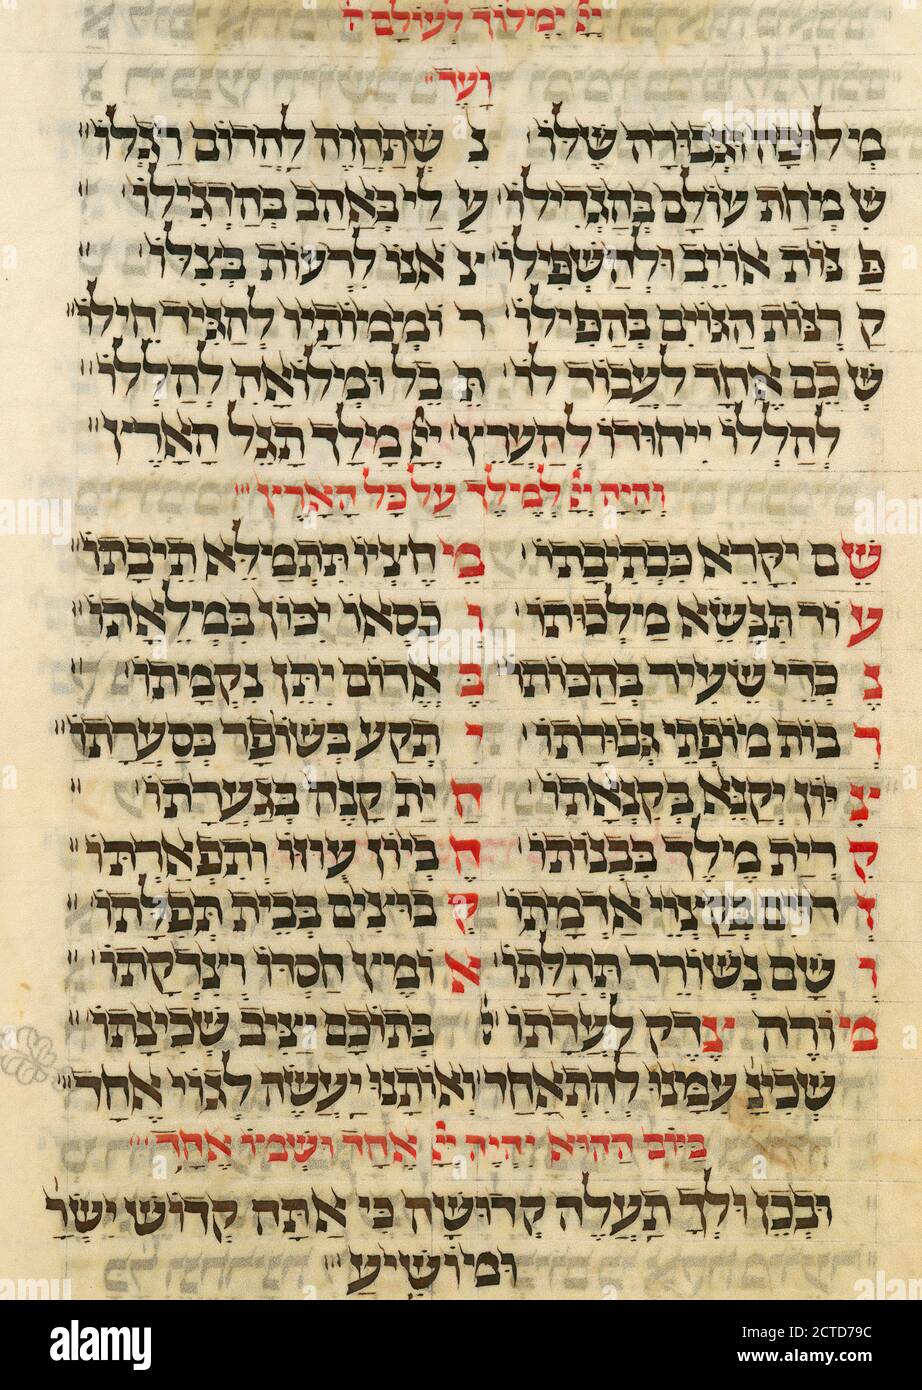 יי֓ ימלוך לעולם
ועד
מלוכה וגבורה שלו נ שתחוה להדום רגלו
שמחת עולם בהגדילו ע לי באהב כהרגילו
פנות אוייב ולהשפילו צ אנו לרעות בצלו
ק רצות הגויים בהפילו ר וממותיו להגיד חילו
שכם אחד לעבוד לו ת בל ומלואה להללו
להללו ייחודו להעריץ יי מלך תגל הארץ
והיה יי למלך על כל הארץ
שם יקרא ככתיבתו מ חציו תתמלא תיבתו
עור תנשא מלכותו ו כסאו יכון במילאתו
בהכותו ב אדום יתן נקמתו
ר בות מופתי גבורתו י תקע בשופר בסערתו
צ יון יקנא בקנאתו ח ית קנה בגערתו
ק רית מלך כבנותו ה כיון עיזו ותפארתו
ז רויים בקצויי אדמתו ק בוצים בבית תפלתו
ו שם נשורר תהלתו א ומץ חסדו וצדקתו
מורה צדק לעדתו בתוכם יציב שכינתו
שכינ עמנו להתאחד ואותנו יעשה לגוי אחד
ביום ההוא יהיה יי אחד ושמו אחד
ובכן ולך תעלה קדושה כי אתה קדוש ישר
ומושיע
alamy
2CTD79C
www.alamy.com